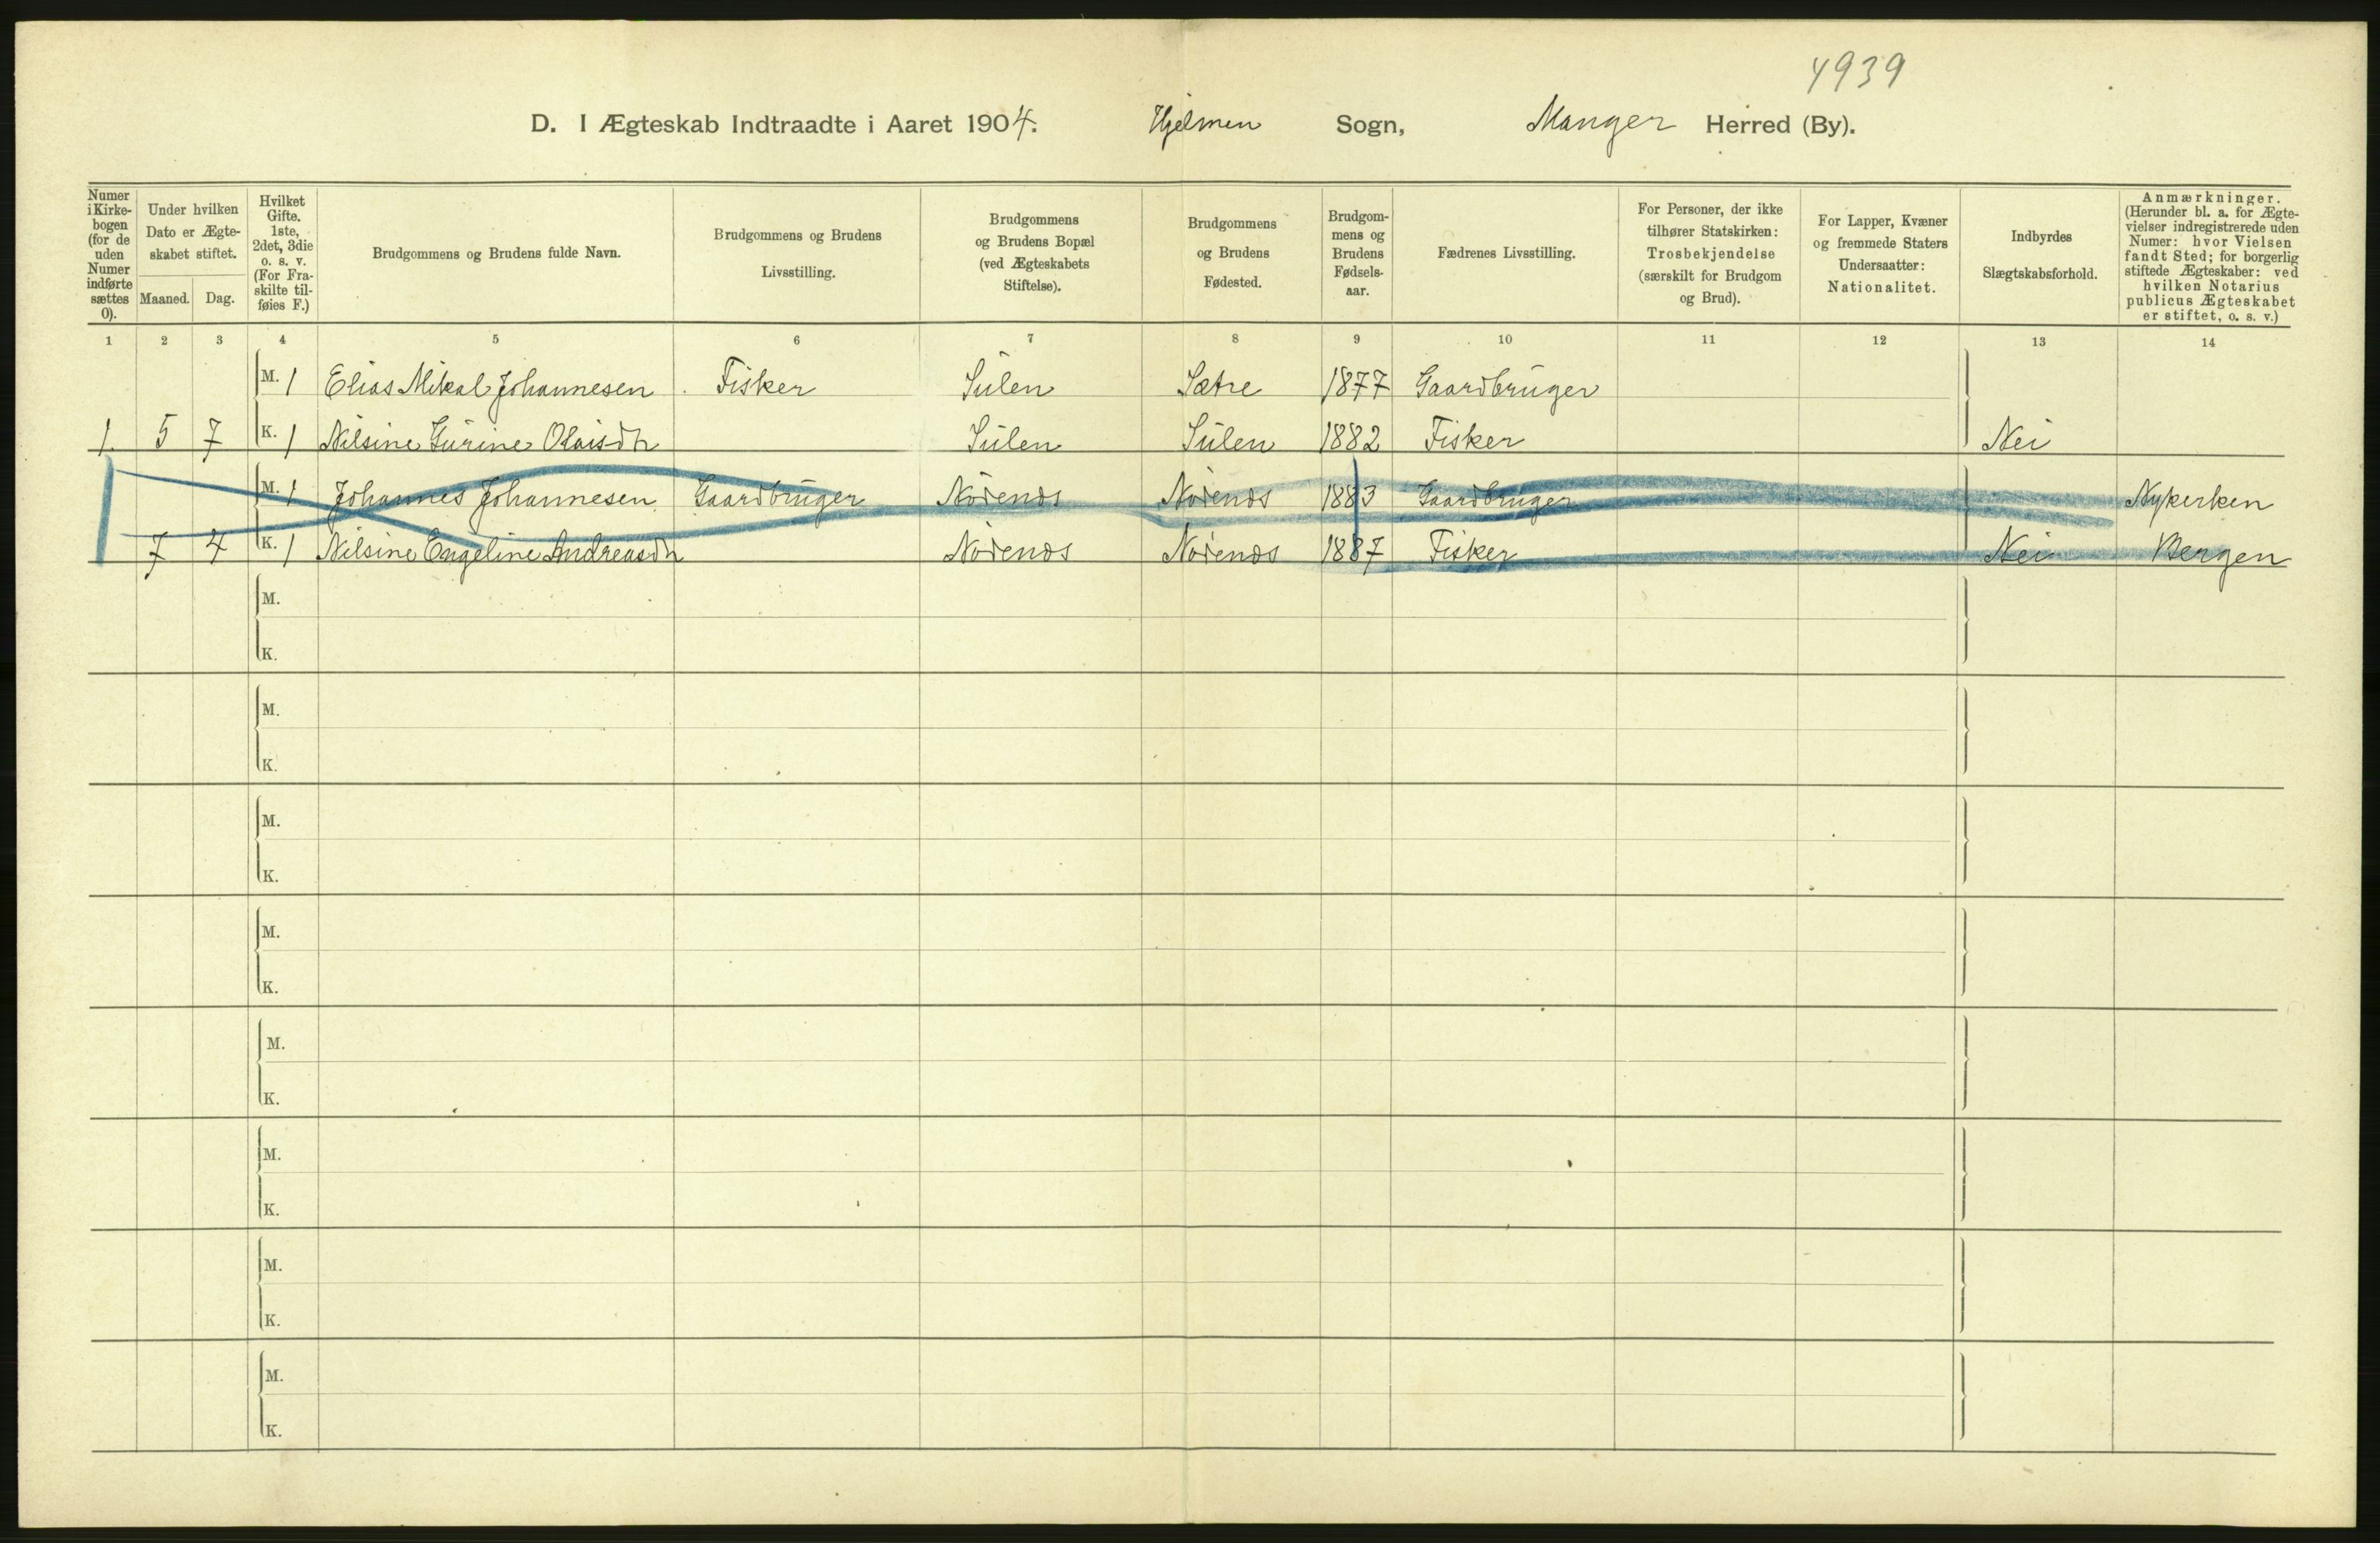 4939
D. I Ægteskab Indtraadte i Aaret 1904. Hjelmen Sogn, Manger Herred (By).
Numer i Kirke- bogen (for de uden Numer indførte sættes 0).
Under hvilken Dato er Ægte- skabet stiftet.
Maaned. Dag.
Hvilket Gifte. 1ste, 2det, 3die o. s. v. (For Fra- skilte til- føies F.)
Brudgommens og Brudens fulde Navn.
Brudgommens og Brudens Livsstilling.
Brudgommens og Brudens Bopæl (ved Ægteskabets Stiftelse).
Brudgommens og Brudens Fødested.
Brudgom- mens og Brudens Fødsels- aar.
Fædrenes Livsstilling.
For Personer, der ikke tilhører Statskirken: Trosbekjendelse (særskilt for Brudgom og Brud).
For Lapper, Kvæner og fremmede Staters Undersaatter: Nationalitet.
Indbyrdes Slægtskabsforhold.
Anmærkninger. (Herunder bl. a. for Ægte- vielser indregistrerede uden Numer: hvor Vielsen fandt Sted; for borgerlig stiftede Ægteskaber: ved hvilken Notarius publicus Ægteskabet er stiftet, o. s. v.)
1 2 3 4 5 6 7 8 9 10 11 12 13 14
M. 1 Elias Mikal Johannesen Fisker Sulen Sætre 1877 Gaardbruger
1 5 7 K. 1 Nilsine Gurine Olaisdtr Sulen Sulen 1882 Fisker Nei
M. 1 Johannes Johannesen Gaardbruger Nordends Nordends 1883 Gaardbruger Nykerken
7 4 K. 1 Nilsine Engeline Andreasdtr Nordends Nordends 1887 Fisker Nei Bergen
M.
K.
M.
K.
M.
K.
M.
K.
M.
K.
M.
K.
M.
K.
M.
K.